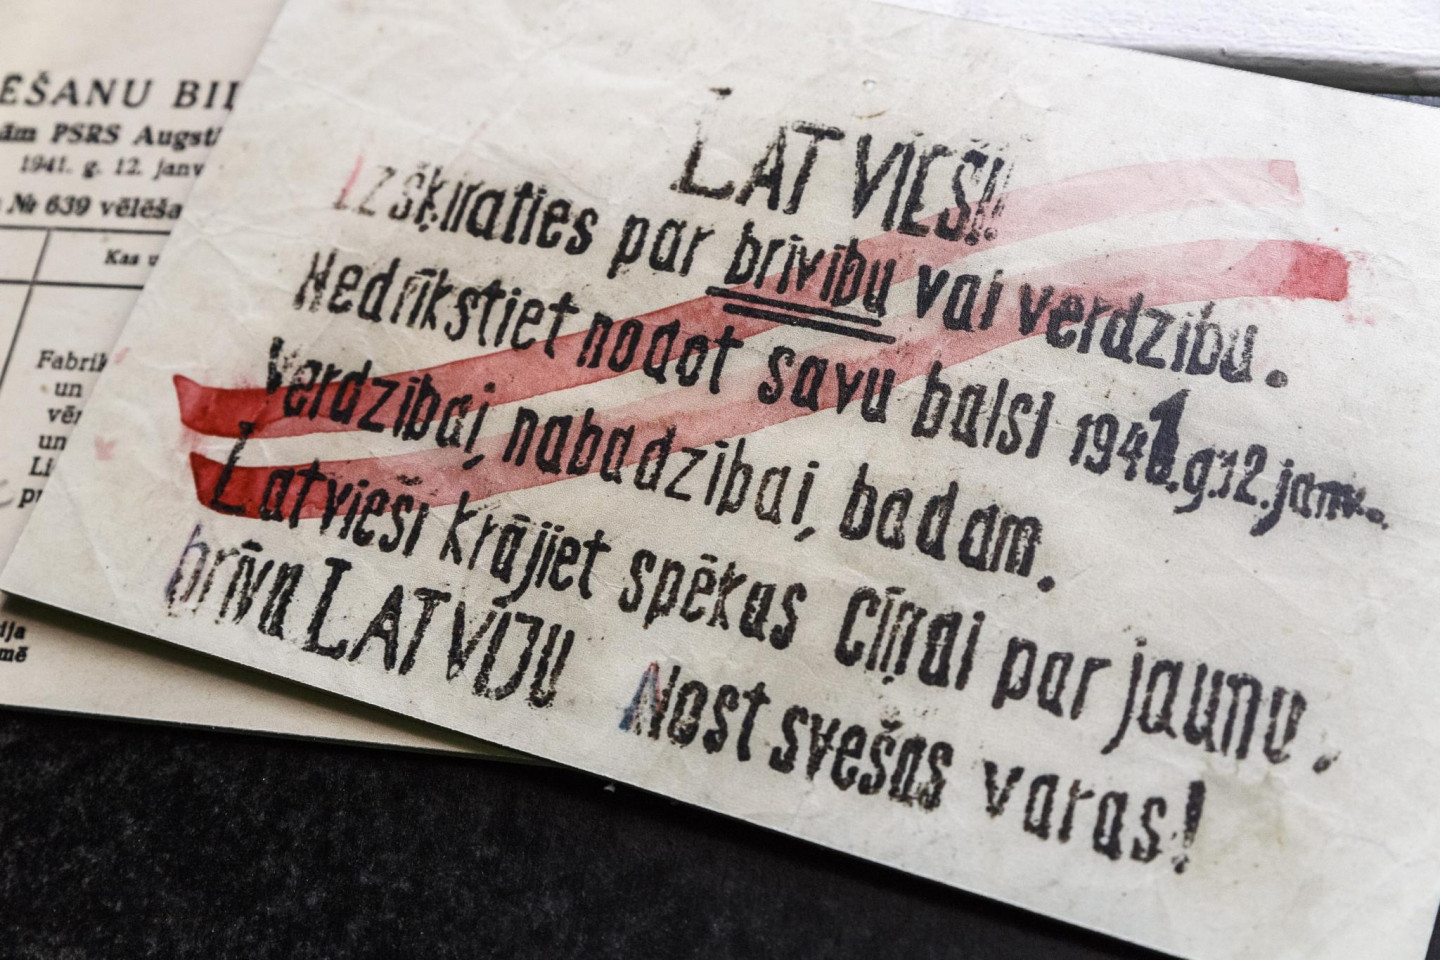 LATVIEŠI!
Izšķiraties par brīvību vai verdzību.
Nedrīkstiet nodot savu balsi 1941.g.12.janv.
Verdzībai, nabadzībai, badam.
Latvieši krājiet spēkas cīņai par jaunu,
brīvu LATVIJU Nost svešas varas!
ĒŠANU BIĻ
PSRS Augst
1941. g. 12. janv
№ 639 vēlēša
Kas
Fabrik
un
vēr
un
Li
pr
ija
mē